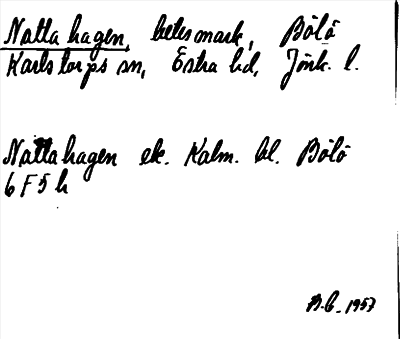 Nattahagen, betesmark, Bölö
Karlstorps sn, Östra hd, Jönk. l.
Nattahagen ek. Kalm. bl. Bölö
6 F 5 h
B.G. 1957